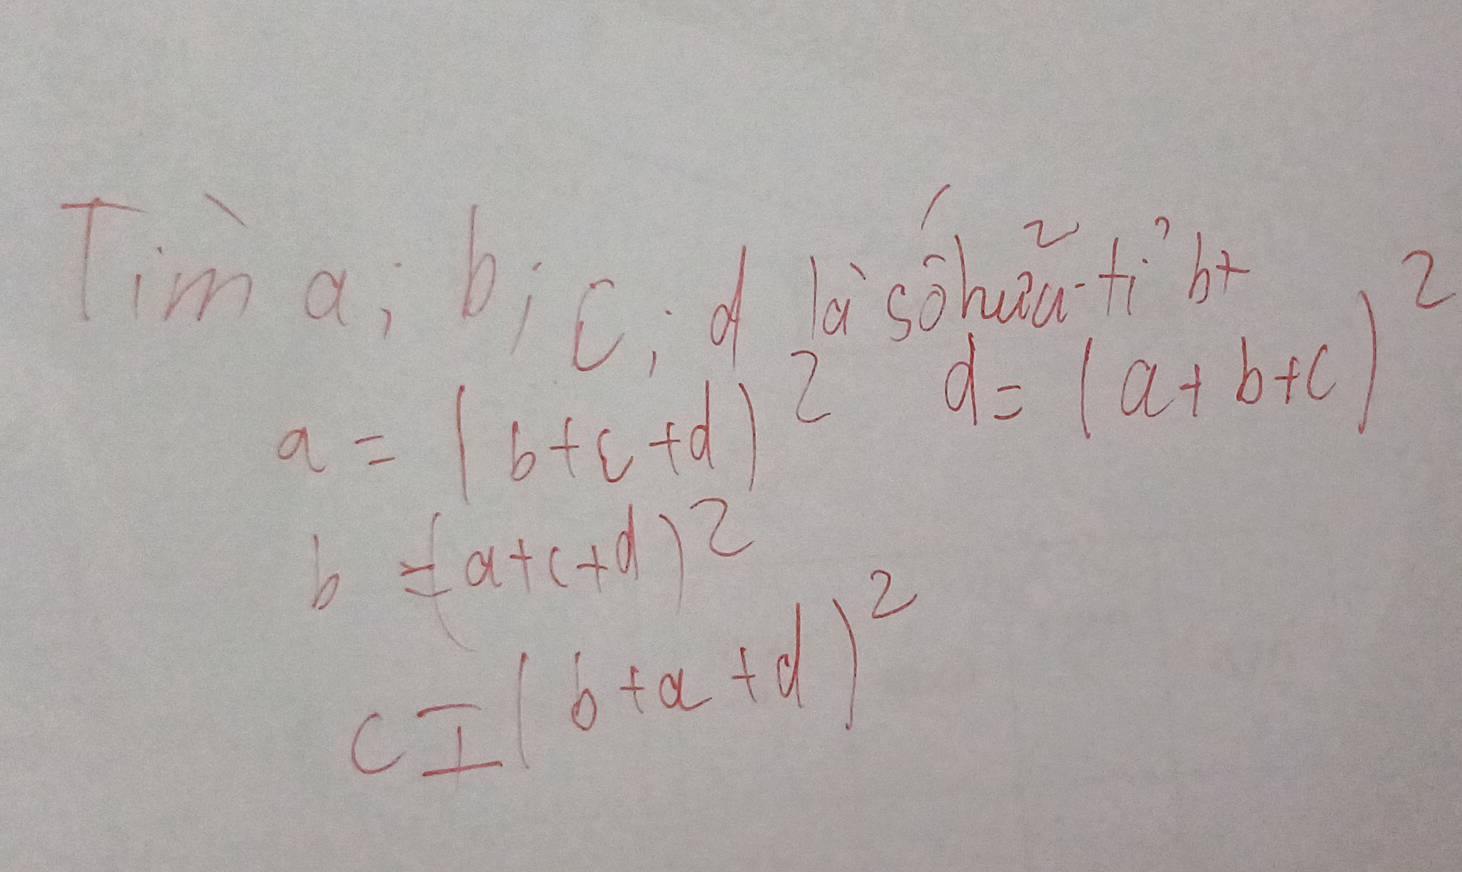 Tìm a; b; c; d là số hữu tỉ bt
a = (b+c+d)² d = (a+b+c)²
b = (a+c+d)²
c = (b+a+d)²